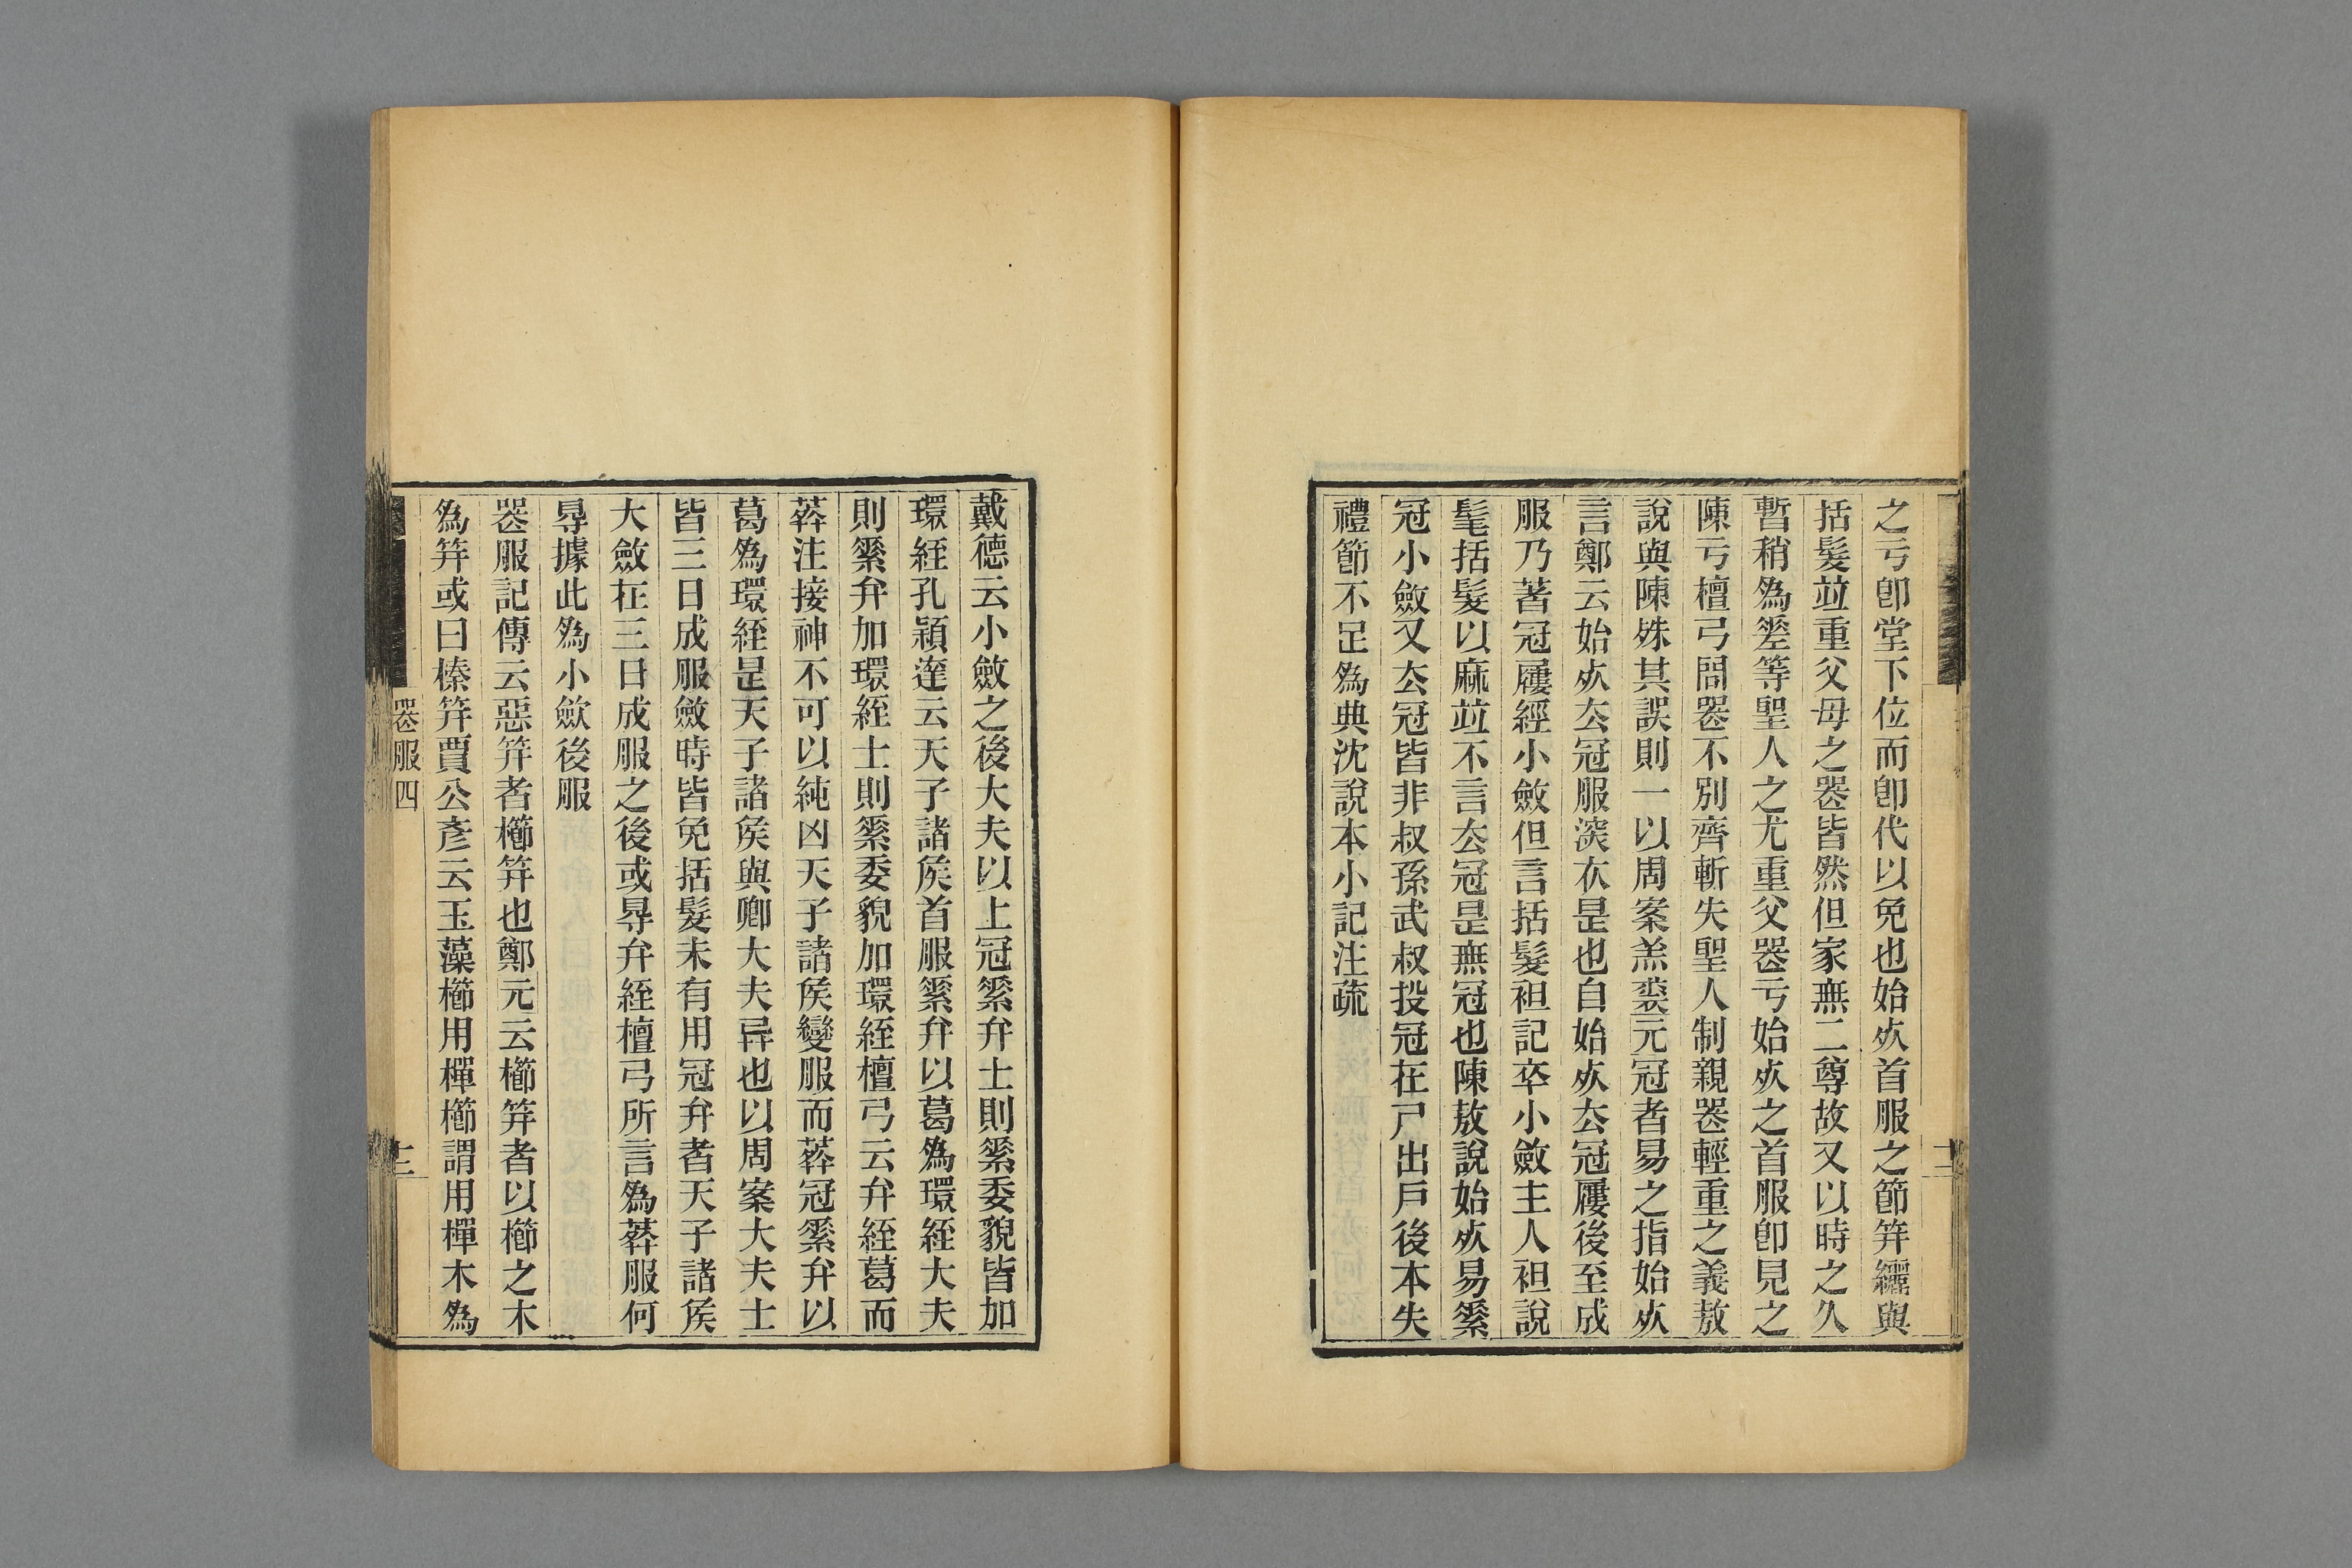 之亏卽堂下位而卽代以免也始𣦸首服之節笄纚與
括髮竝重父母之䘮皆然但家無二尊故又以時之久
暫稍爲𢀩等聖人之尤重父䘮亏始𣦸之首服卽見之
陳亏檀弓問䘮不別齊斬失聖人制親䘮輕重之義敖
說與陳殊其誤則一以周案羔裘元冠者易之指始𣦸
言鄭云始𣦸厺冠服深衣是也自始𣦸厺冠屨後至成
服乃著冠屨經小斂但言括髮袒記卒小斂主人袒說
髦括髮以麻竝不言厺冠是無冠也陳敖說始𣦸易𦃃
冠小斂又厺冠皆非叔孫武叔投冠在尸出戶後本失
禮節不足爲典沈說本小記注疏
戴德云小斂之後大夫以上冠𦃃弁士則𦃃委貌皆加
環絰孔穎達云天子諸矦首服𦃃弁以葛爲環絰大夫
則𦃃弁加環絰士則𦃃委貌加環絰檀弓云弁絰葛而
葬注接神不可以純凶天子諸矦變服而葬冠𦃃弁以
葛爲環絰是天子諸矦與卿大夫异也以周案大夫士
皆三日成服斂時皆免括髮未有用冠弁者天子諸矦
大斂在三日成服之後或㝵弁絰檀弓所言爲葬服何
㝵據此爲小斂後服
䘮服記傳云惡笄者櫛笄也鄭元云櫛笄者以櫛之木
爲笄或曰榛笄賈公彥云玉藻櫛用樿櫛謂用樿木爲
䘮服四
十二